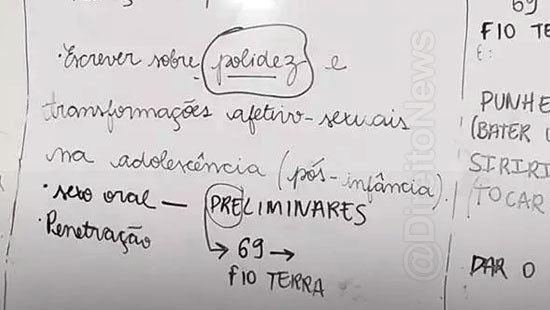 ·Escrever sobre polidez e
transformações afetivo-sexuais
na adolescência (pós-infância).
·sexo oral — PRELIMINARES
·Penetração
→ 69 →
FIO TERRA
69
FIO TER
E:
PUNHE
(BATER
SIRIRI
TOCAR
DAR O
@DireitoNews